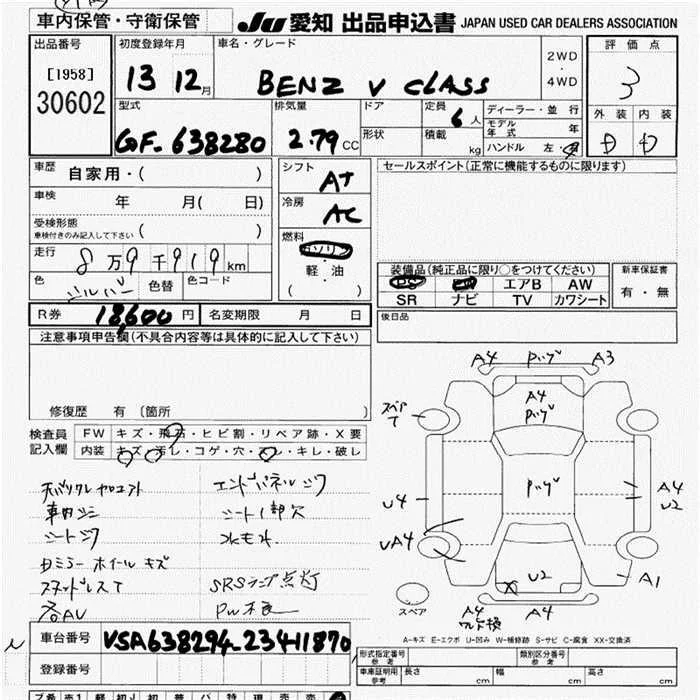 車内保管・守衛保管
JU 愛知 出品申込書 JAPAN USED CAR DEALERS ASSOCIATION
出品番号
[1958]
30602
初度登録年月
13 12月
車名・グレード
BENZ V CLASS
2WD
・
4WD
評価点
3
型式
GF-638280
排気量
2.79 CC
ドア
形状
定員 6人
積載 kg
ディーラー・並行
モデル年式 年
ハンドル 左・
外装 内装
車歴 自家用・( )
車検 年 月( 日)
受検形態
車検付きのみ記入して下さい ( )
走行 8万9千919km
色 シルバー 色替 色コード
シフト AT
冷房 AC
燃料
ガソリン
・
軽・油
( )
セールスポイント(正常に機能するものに限ります)
装備品(純正品に限り○をつけてください)
PS PW エアB AW
SR ナビ TV カワシート
新車保証書
有・無
R券 18,600円 名変期限 月 日
後日品
注意事項申告欄(不具合内容等は具体的に記入して下さい)
修復歴 有 〔箇所 〕
検査員記入欄
FW キズ・飛石・ヒビ割・リペア跡・X要
内装 キズ・汚レ・コゲ・穴・スレ・キレ・破レ
車内シミ
シートシワ
シート1部欠
水もれ
ドミラー ホイール キズ
スタッドレスT
SRSランプ点灯
PW不良
各AU
A4 A3
A4
スペアT
U4
UA4
A4
U2
A1
U2
A4
A4
スペア
A-キズ E-エクボ U-凹み W-補修跡 S-サビ C-腐食 XX-交換済
車台番号 VSA638294-23411870
登録番号
形式指定番号
参考
類別区分番号
参考
車庫証明用
参考
長さ cm 幅 cm 高さ cm